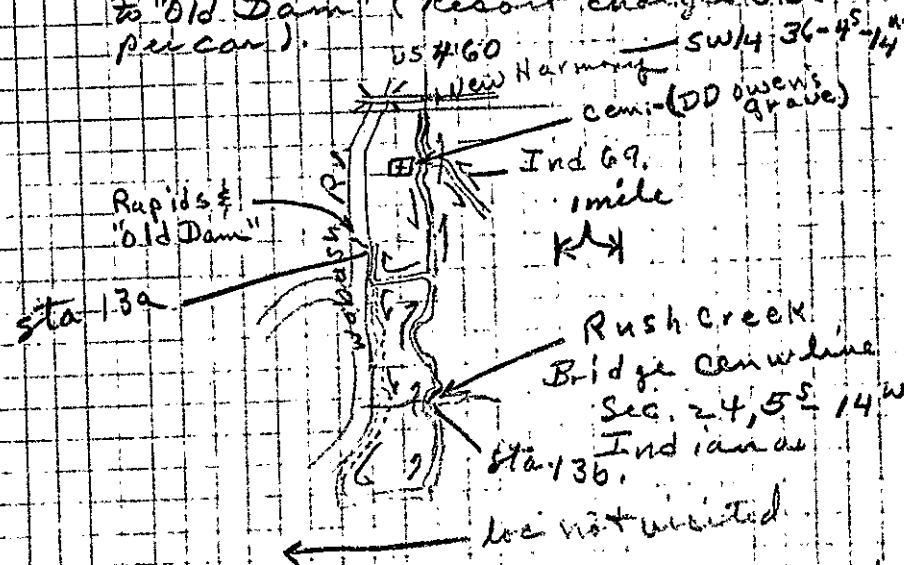 to "Old Dam" (Resort charges
per car).
US #60
New Harmony
SW/4 36-4S-14W
cem.-(DD Owen's
grave)
Ind 69.
1 mile
Rapids &
"Old Dam"
Wabash Rv
sta 13a
Rush Creek
Bridge cen w line
Sec. 24, 5S-14W
Indiana
Sta 13b.
loc not visited